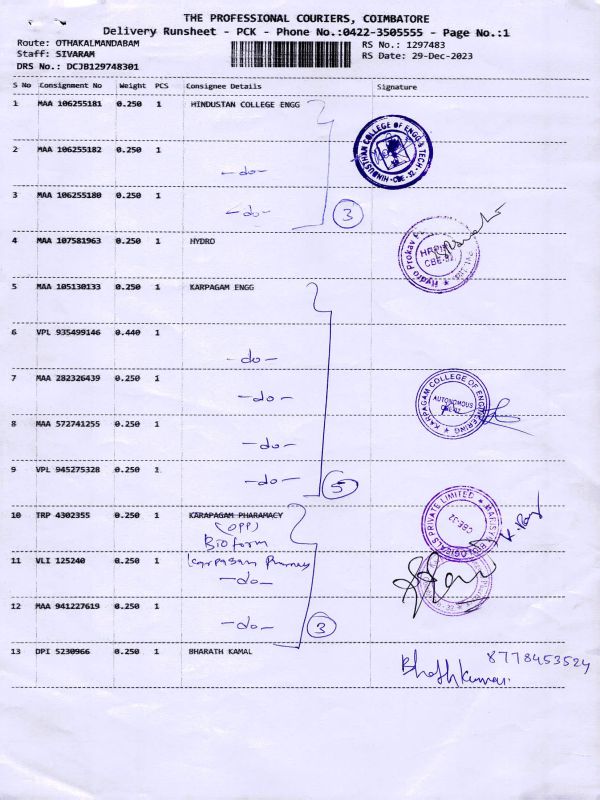 THE PROFESSIONAL COURIERS, COIMBATORE
Delivery Runsheet - PCK - Phone No.:0422-3505555 - Page No.:1
Route: OTHAKALMANDABAM
Staff: SIVARAM
DRS No.: DCJB129748301
RS No.: 1297483
RS Date: 29-Dec-2023
S No Consignment No Weight PCS Consignee Details Signature
1 MAA 106255181 0.250 1 HINDUSTAN COLLEGE ENGG
HINDUSTHAN COLLEGE OF ENGG & TECH
CBE-32
2 MAA 106255182 0.250 1
-do-
3 MAA 106255180 0.250 1
-do- 3
4 MAA 107581963 0.250 1 HYDRO
Hydro Prokav
CBE-32
5 MAA 105130133 0.250 1 KARPAGAM ENGG
6 VPL 935499146 0.440 1
-do-
7 MAA 282326439 0.250 1
-do-
KARPAGAM COLLEGE OF ENGINEERING
AUTONOMOUS
CBE-32
8 MAA 572741255 0.250 1
-do-
9 VPL 945275328 0.250 1
-do- 5
10 TRP 4302355 0.250 1 KARAPAGAM PHARAMACY
(OPP)
Bioform
PRIVATE LIMITED
CBE-32
11 VLI 125240 0.250 1 Karpagam
-do-
12 MAA 941227619 0.250 1
-do- 3
13 DPI 5230966 0.250 1 BHARATH KAMAL
8778453524